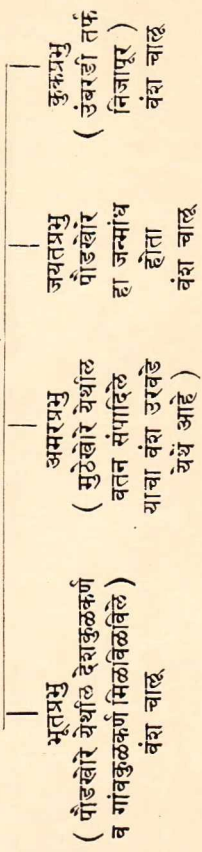 भूतप्रभु
( पौडखोरे येथील देशकुळकर्ण
व गांवकुळकर्ण मिळविळविले )
वंश चालू
अमरप्रभु
( मुठेखोरे येथील
वतन संपादिले
याचा वंश उरवडे
येथें आहे )
जयतप्रभु
पौडखोरे
हा जन्मांध
होता
वंश चालू
कुकप्रभु
( उंबरडी तर्फ
निजापूर )
वंश चालू